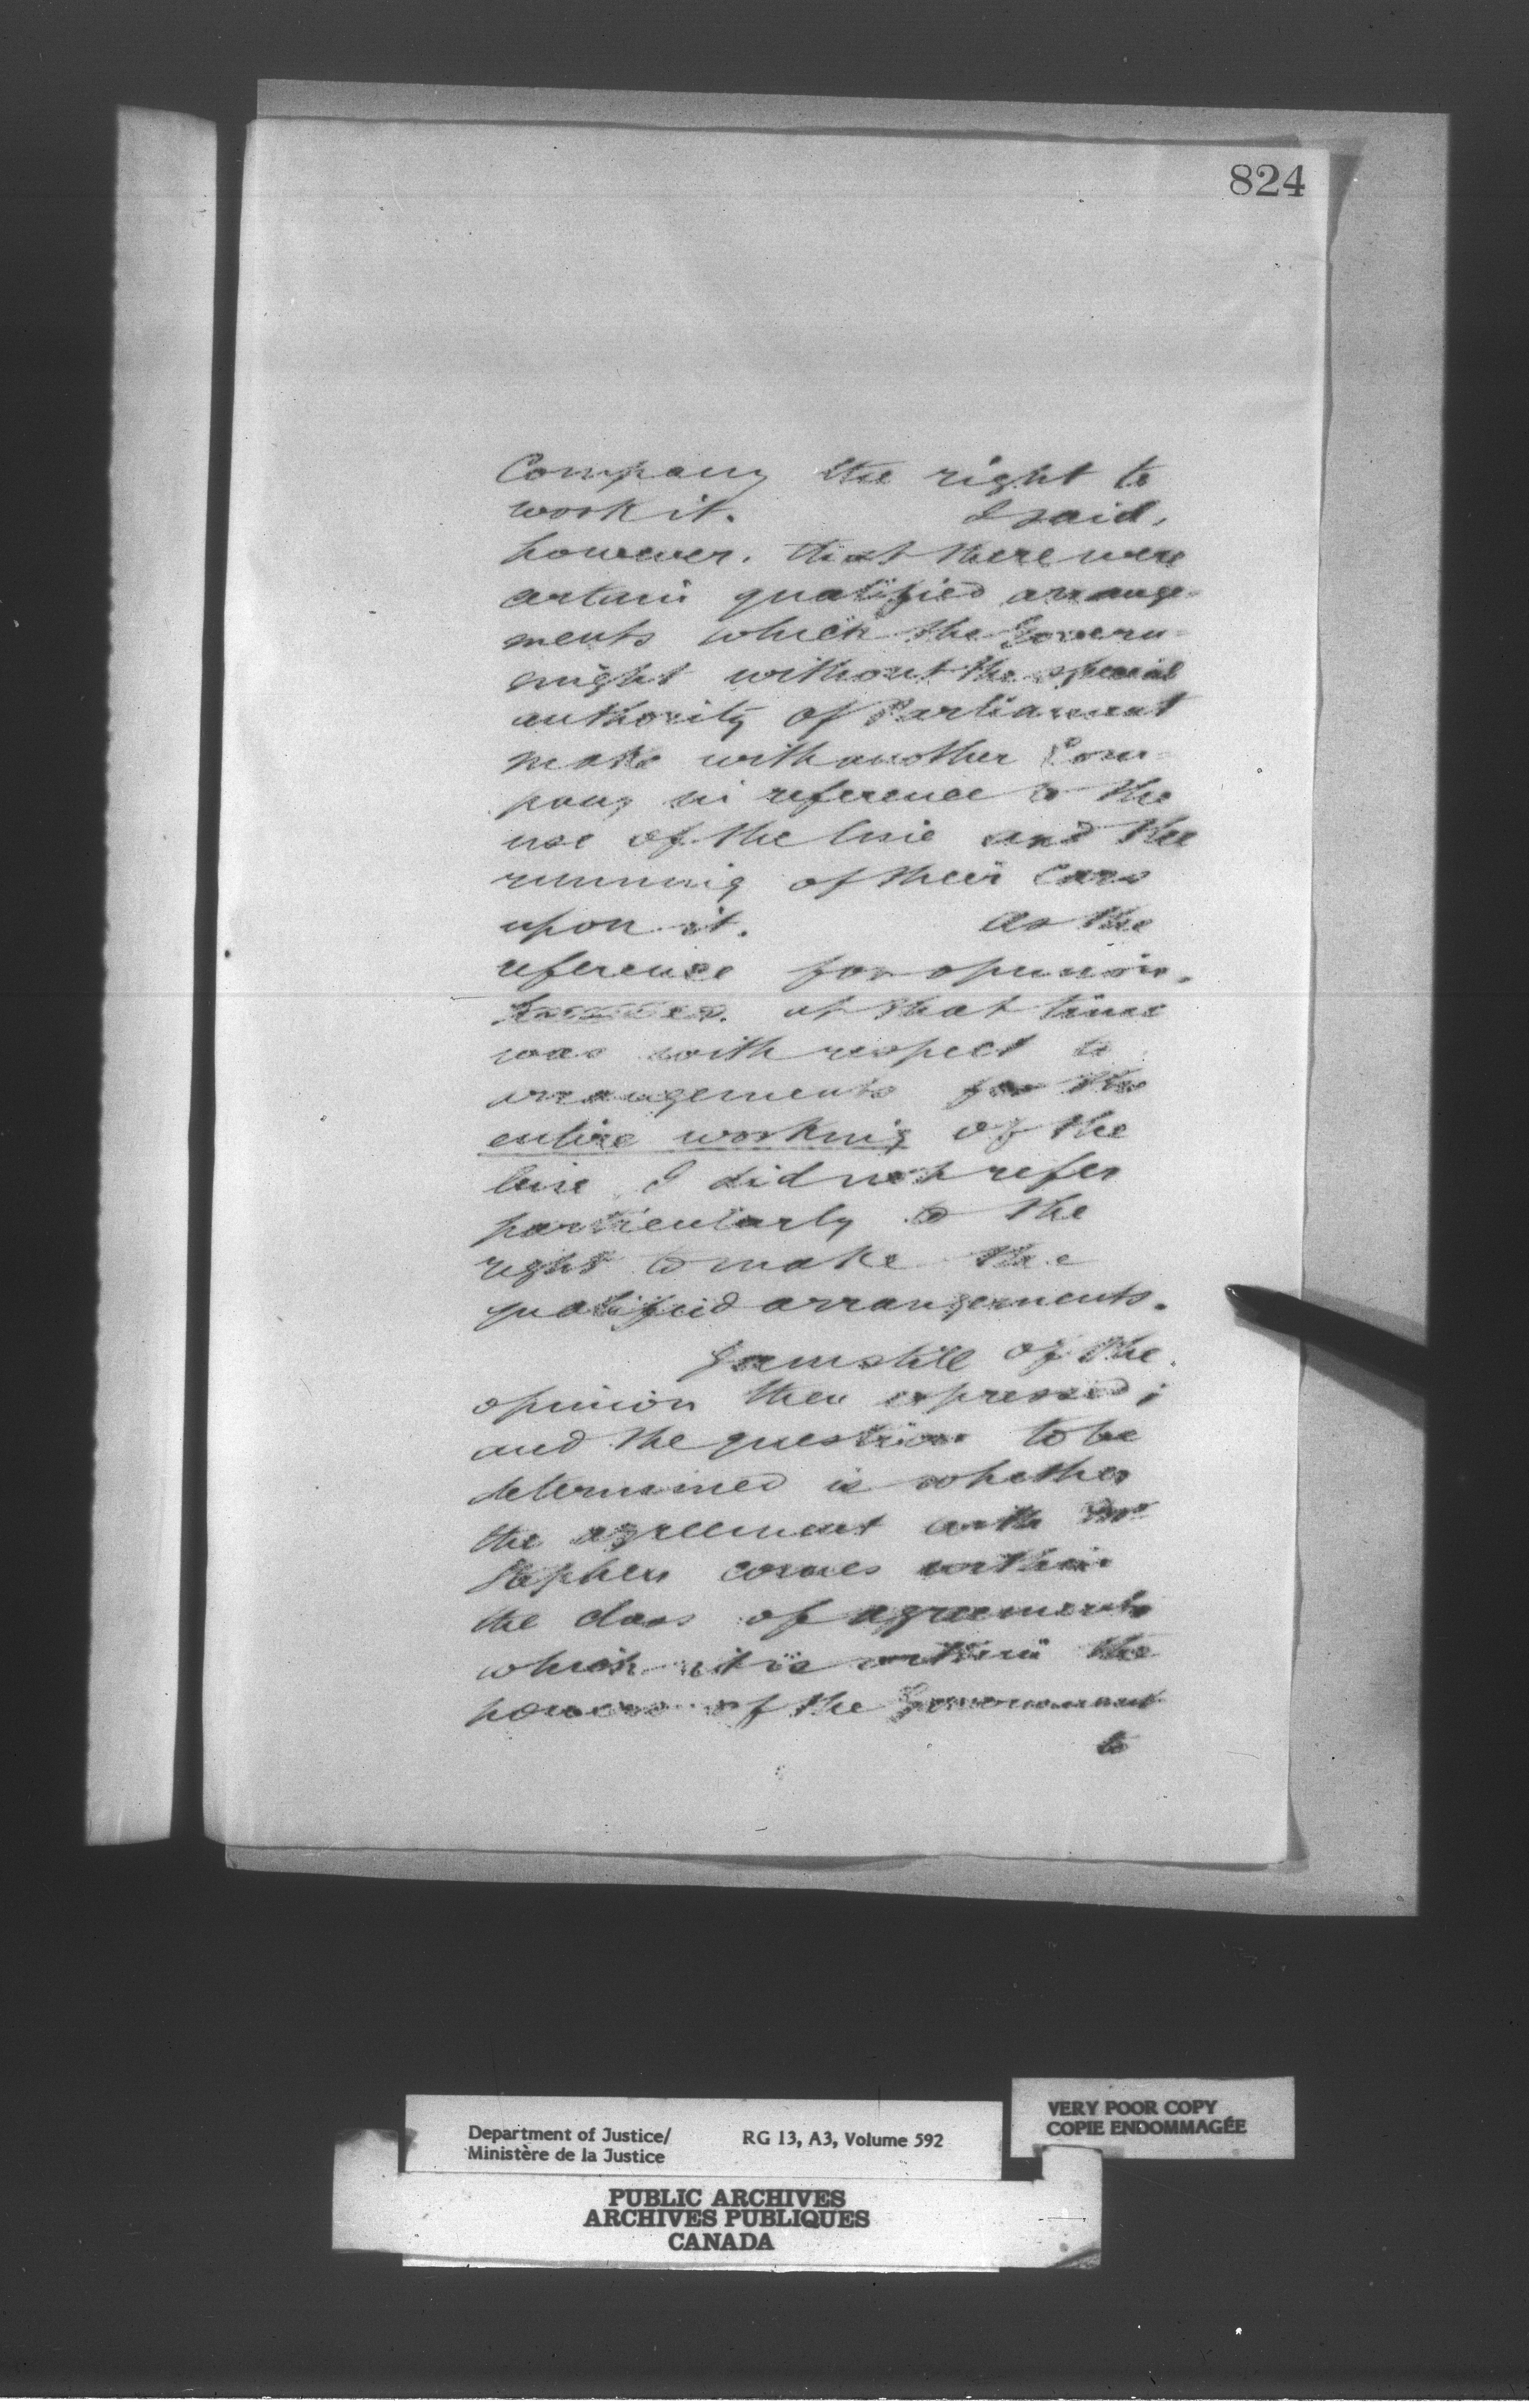 824
Company the right to
work it. I said,
however, that there were
certain qualified arrange-
ments which the Govern-
might without the special
authority of Parliament
make with another Com-
pany in reference to the
use of the line and the
running of their Cars
upon it. As the
reference for opinion,
at that time
was with respect to
arrangements for the
entire working of the
line I did not refer
particularly to the
right to make the
qualified arrangements.
I am still of the
opinion then expressed;
and the question to be
determined is whether
the agreement with Mr
Stephen comes within
the class of agreements
which it is within the
powers of the Government
to
Department of Justice/
Ministère de la Justice
RG 13, A3, Volume 592
VERY POOR COPY
COPIE ENDOMMAGÉE
PUBLIC ARCHIVES
ARCHIVES PUBLIQUES
CANADA